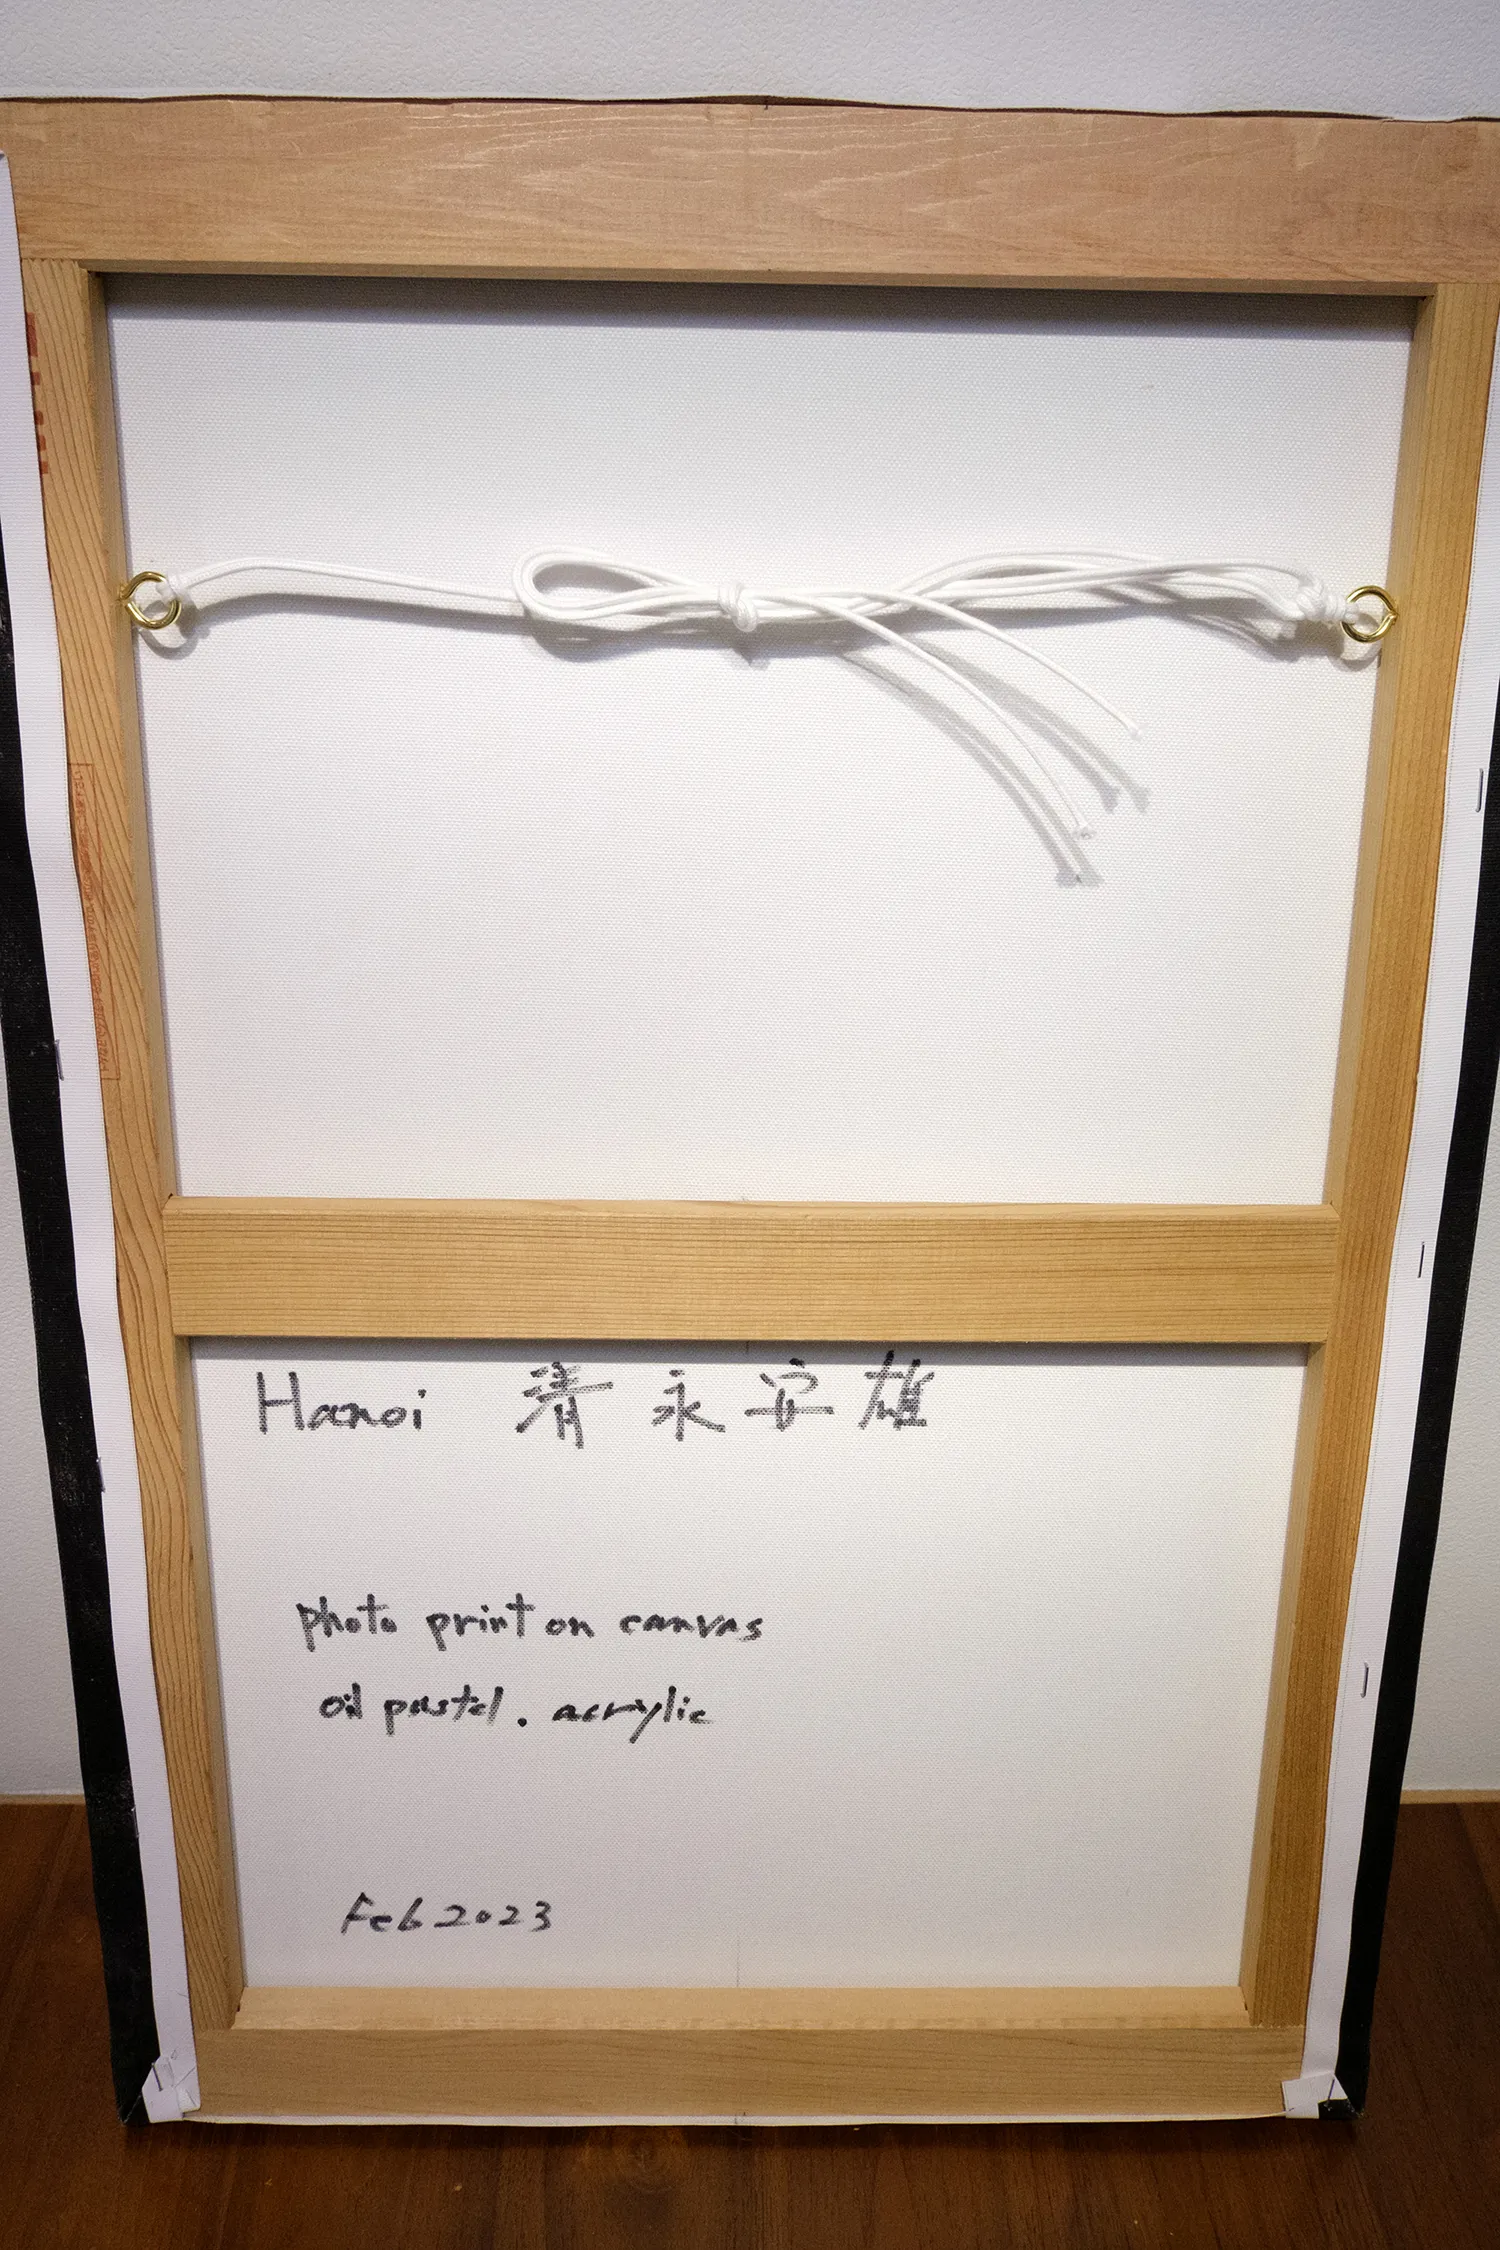 Hanoi 清永安雄
photo print on canvas
oil pastel. acrylic
Feb 2023